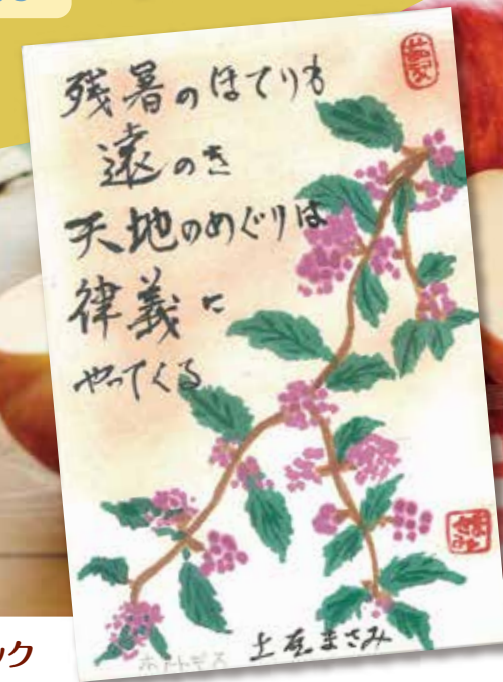 残暑のほてりも
遠のき
天地のめぐりは
律義に
やってくる
ホトトギス
まさみ
ック